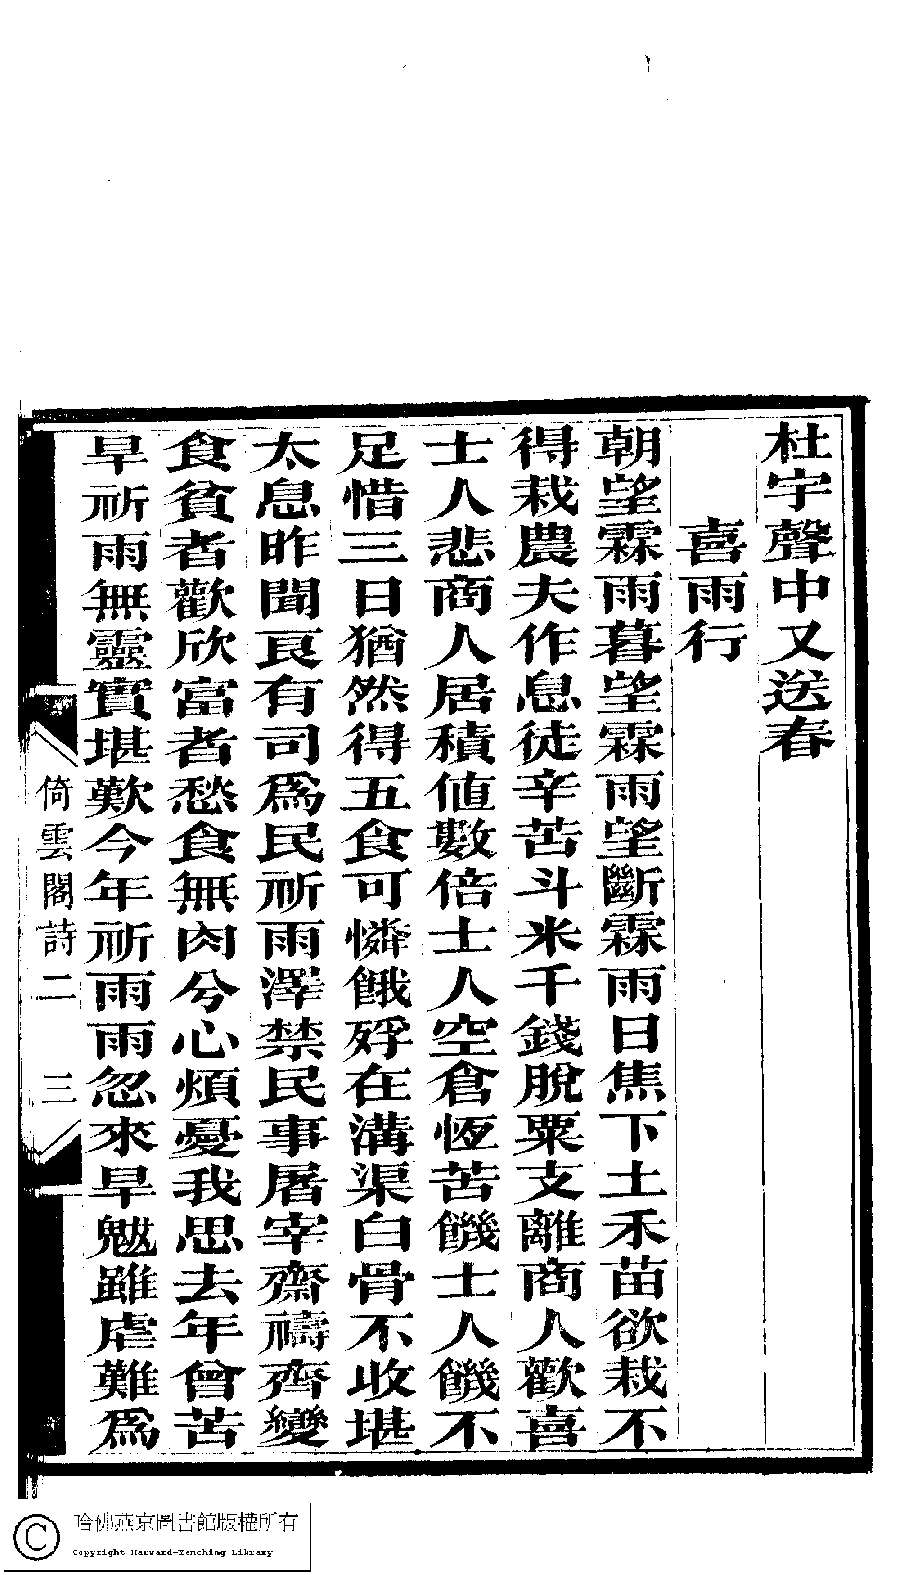 杜宇聲中又送春
喜雨行
朝望霖雨暮望霖雨望斷霖雨日焦下土禾苗欲栽不
得栽農夫作息徒辛苦斗米千錢脫粟支離商人歡喜
士人悲商人居積値數倍士人空倉恆苦饑士人饑不
足惜三日猶然得五食可憐餓殍在溝渠白骨不收堪
太息昨聞良有司爲民祈雨澤禁民事屠宰齋禱齊變
食貧者歡欣富者愁食無肉兮心煩憂我思去年曾苦
旱祈雨無靈實堪歎今年祈雨雨忽來旱魃雖虐難爲
倚雲閣詩二 三
哈佛燕京圖書館版權所有
Copyright Harvard-Yenching Library